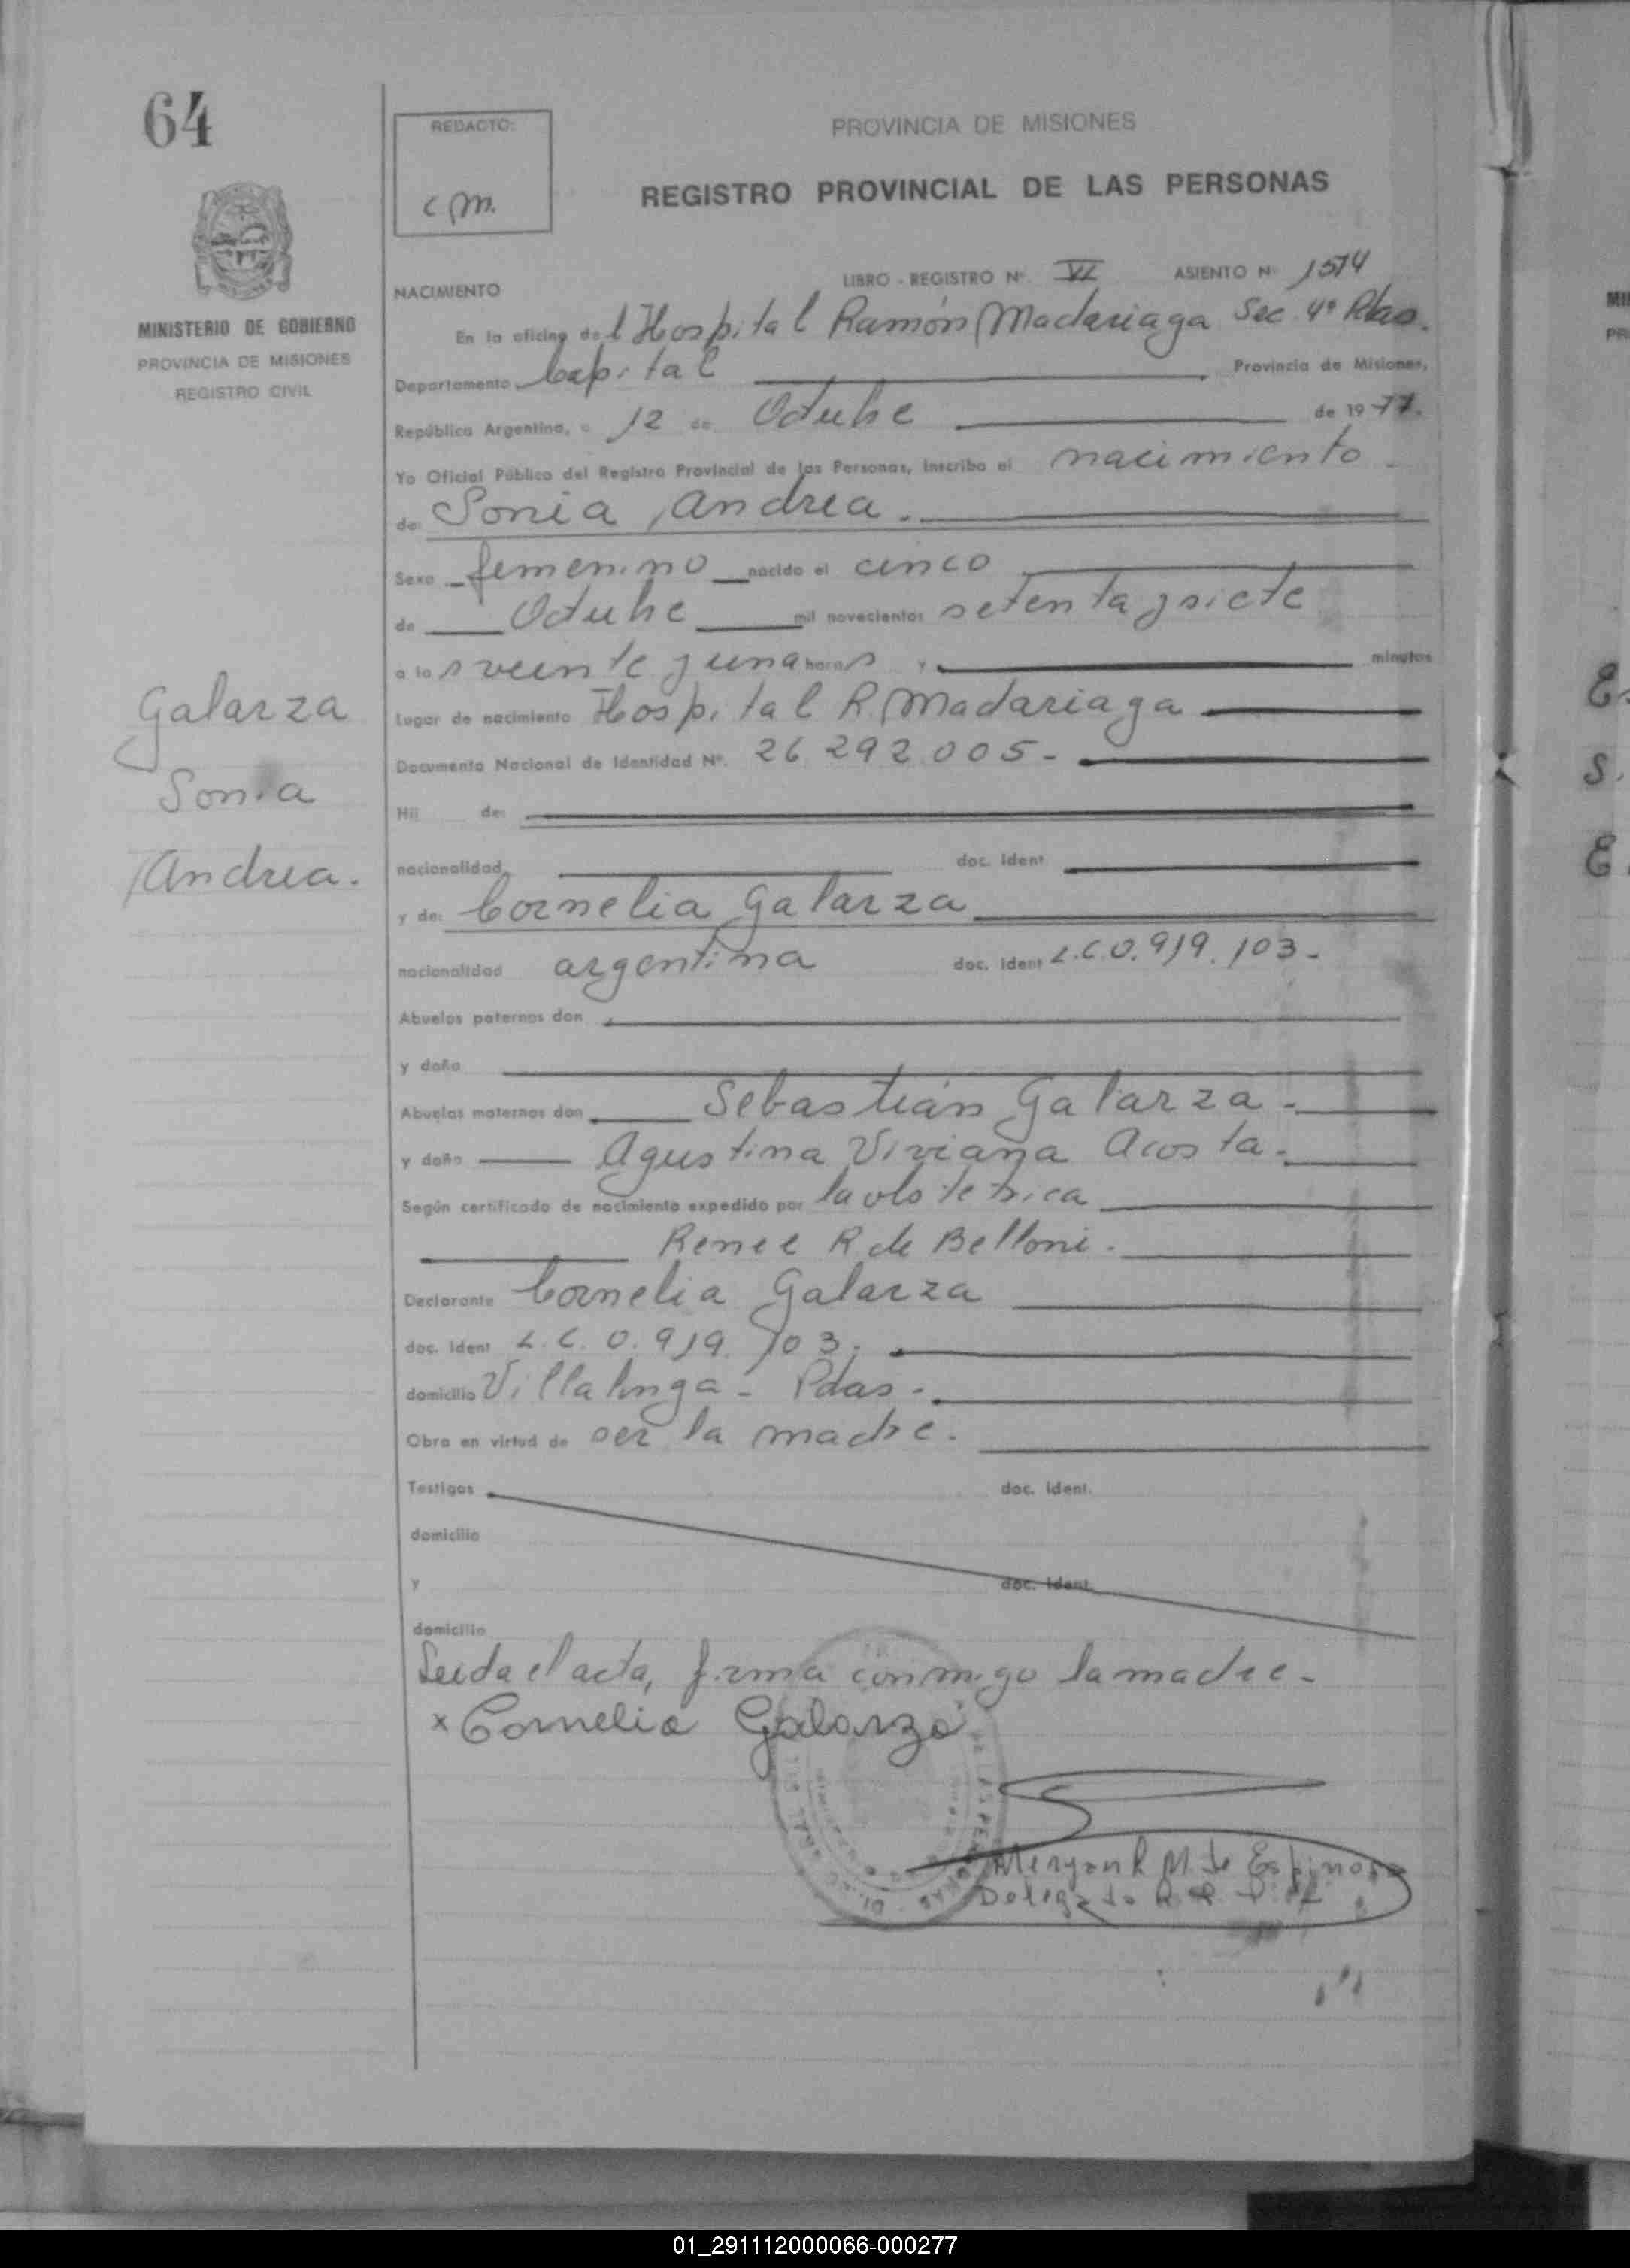 64
REDACTO:
c.m.
PROVINCIA DE MISIONES
REGISTRO PROVINCIAL DE LAS PERSONAS
MINISTERIO DE GOBIERNO
PROVINCIA DE MISIONES
REGISTRO CIVIL
NACIMIENTO LIBRO - REGISTRO Nº VI ASIENTO Nº 1574
En la oficina del Hospital Ramón Madariaga Sec 4º Pdas.
Departamento Capital Provincia de Misiones,
República Argentina, a 12 de Octubre de 1977.
Yo Oficial Público del Registro Provincial de las Personas, inscribo el nacimiento
de: Sonia Andrea.
Sexo femenino nacido el cinco
de Octubre mil novecientos setenta y siete
a las veinte y una horas y minutos
Galarza
Sonia
Andrea.
Lugar de nacimiento Hospital R. Madariaga
Documento Nacional de Identidad Nº. 26 292 005 -
Hij de:
nacionalidad doc. ident
y de: Cornelia Galarza
nacionalidad argentina doc. ident L.C. 0.919.103 -
Abuelos paternos don
y doña
Abuelos maternos don Sebastián Galarza -
y doña Agustina Viviana Acosta -
Según certificado de nacimiento expedido por la obstetrica
Renee R. de Belloni.
Declarante Cornelia Galarza
doc. ident L.C. 0.919.103.
domicilio Villalonga - Pdas.
Obra en virtud de ser la madre.
Testigos doc. ident.
domicilio
y doc. ident.
domicilio
Leida el acta, firma conmigo la madre -
x Cornelia Galarza
M. de Espinosa
01_291112000066-000277